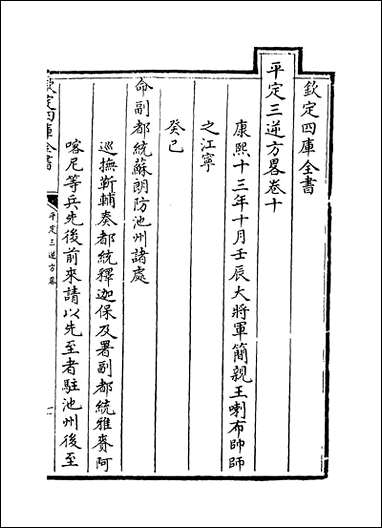 欽定四庫全書
平定三逆方畧卷十
康熙十三年十月壬辰大將軍簡親王喇布帥師
之江寧
癸己
命副都統蘇朗防池州諸處
巡撫靳輔奏都統釋迦保及署副都統雅賚阿
喀尼等兵先後前來請以先至者駐池州後至
欽定四庫全書
平定三逆方畧
一